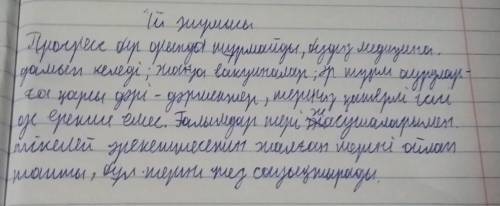 Үй жұмысы
Прогресс бір орында тұрмайды, біздің медицина
дамып келеді; жаңа вакциналар; әр түрлі аурулар-
ға қарсы дәрі-дәрмектер, терінің қатерлі ісігі
де ерекше емес. Ғалымдар тері жасушаларымен
тікелей әрекеттесетін жалған теріні ойлап
тапты, бұл терінің тез